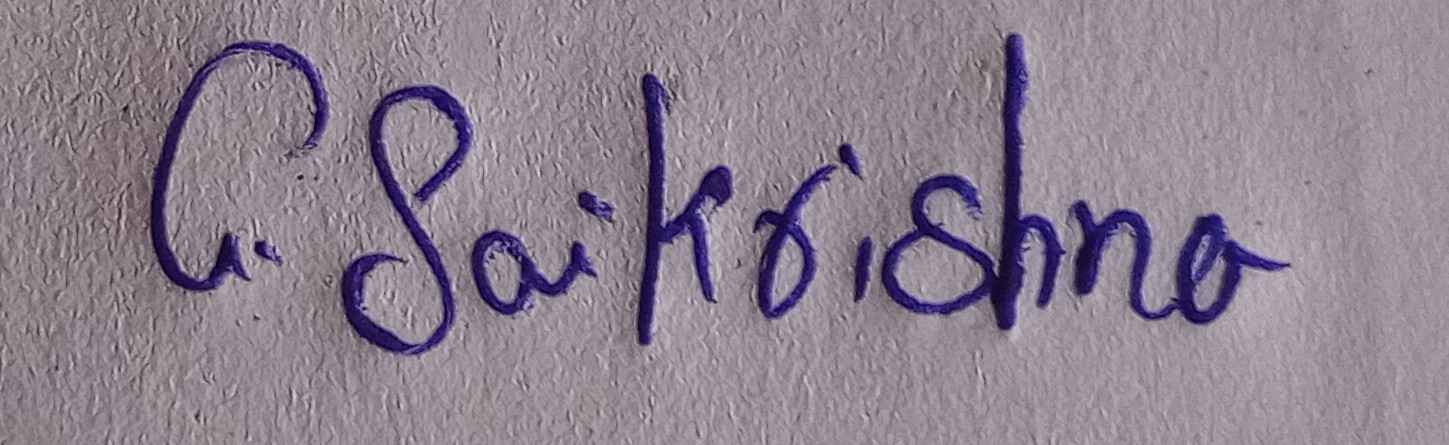 C. Saikrishna